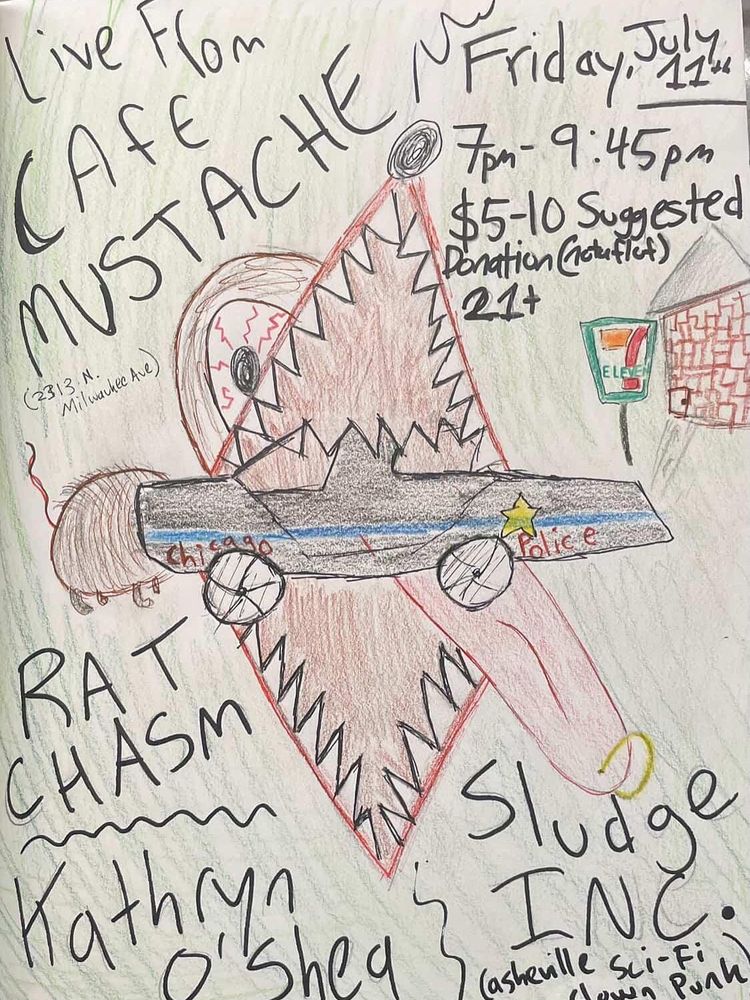 Live From
CAFE
MUSTACHE
(2313 N.
Milwaukee Ave)
Friday, July
11th
7pm - 9:45pm
$5-10 Suggested
Donation (notaflof)
21+
7
ELEVEN
Chicago Police
RAT
CHASM
Kathryn
O'Shea
Sludge
INC.
(asheville Sci-Fi
Clown Punk)